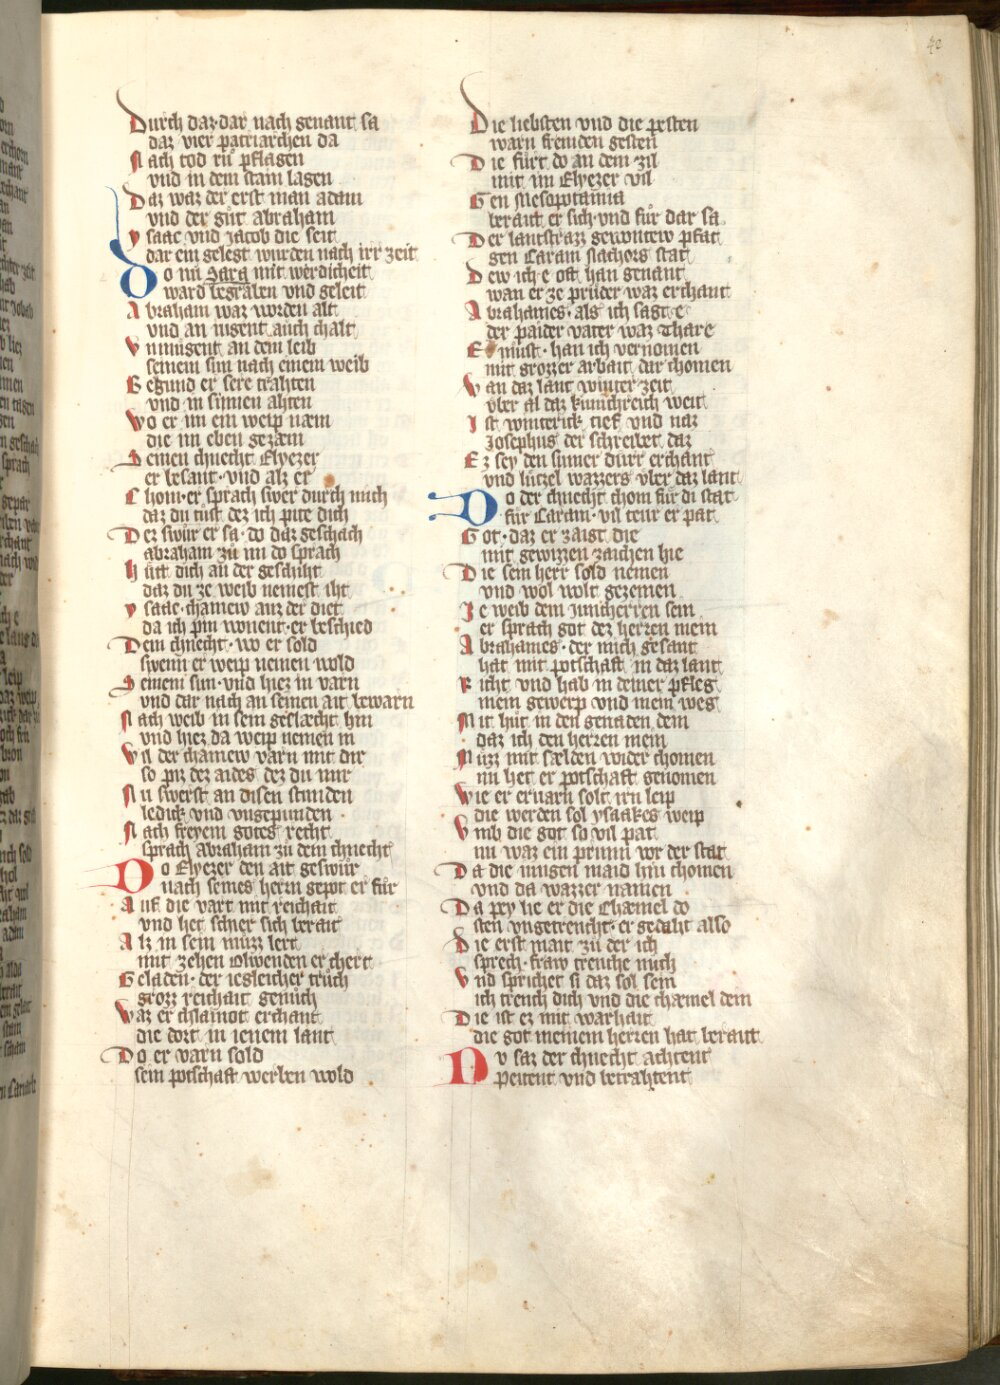 42
Durch daz·dar nach genant sa
daz vier patriarchen da
Nach tod rů pflagen
vnd in dem stain lagen
Daz waz der erst man adam
vnd der gůt abraham
ysaac vnd Jacob die seit
dar ein gelegt wurden nach irr zeit
Do nu Sara mit werdicheit
ward begraben vnd geleit
Abraham waz worden alt
vnd an iugent auch chalt
Vnmugent an dem leib
seinem sun nach einem weib
Begund er sere trahten
vnd in sinnen ahten
Wo er im ein weip næm
die im eben gezæm
Seinen chnecht Elyezer
er besant·vnd alz er
Chom·er sprach swer durch mich
daz du tůst dez ich pite dich
Der swůr er sa·do daz geschach
abraham zů im do sprach
Hůtt dich an der geschiht
daz du ze weib nemest iht
ysaac·chainew auz der diet
da ich pin wonent·er beschied
Dem chnecht·wo er sold
swenn er weip nemen wold
Seinem sun·vnd hiez in varn
vnd dar nach an seinen ait bewarn
Nach weib in sein geslæcht hin
vnd hiez da weip nemen in
Vil der chainew varn mit dir
so piz dez aides dez du mir
Nu swerst an disen stunden
ledick vnd vngepunden
Nach freyem gotes recht
sprach Abraham zů dem chnecht
Do Elyezer den ait geswůr
nach seines herrn gepot er fůr
Auf die vart mit reichait
vnd het schier sich berait
Alz in sein můzz lert
mit zehen olwenden er chert
Geladen·der iegleicher trůch
grozz reichait genůch
Waz er chlainot erchant
die dort in ienem lant
Do er varn sold
sein potschaft werben wold
Die liebsten vnd die pesten
warn fremden gesten
Die fůrt do an dem zil
mit im Elyezer vil
Gen Mesopotamia
berait er sich·vnd fůr dar sa
Der lantstrazz gewontew pfat
gen Caram Nachors stat
Dew ich e oft han genant
wan er ze průder waz erchant
Abrahames·als ich sagt e
der paider vater waz Thare
Er můst·han ich vernomen
mit grozzer arbait dar chomen
Wan daz lant winter zeit
vber al daz kunichreich weit
Ist winterick tief vnd naz
Josephus der schreibet daz
Ez sey den sumer dürr erchant
vnd lützel wazzers vber daz lant
Do der chnecht chom für di stat
für Caram·vil teur er pat
Got·daz er zaigt die
mit gewizzen zaichen hie
Die sein herr sold nemen
vnd wol wolt gezemen
Ze weib dem junchherren sein
er sprach got dez herren mein
Abrahames·der mich gesant
hat mit potschaft in daz lant
Richt vnd hab in deiner pfleg
mein gewerp vnd mein weg
Mit hůt in den genaden dein
daz ich den herren mein
Můzz mit sælden wider chomen
nu het er potschaft genomen
Wie er ervarn solt irn leip
die werden sol ysaakes weip
Vmb die got so vil pat
nu waz ein prunn vor der stat
Da die iungen maid hin chomen
vnd da wazzer namen
Da pey lie er die Chæmel do
sten vngetrencht·er gedaht also
Die erst mait zu der ich
sprech·fraw trenche mich
Vnd sprichet si daz sol sein
ich trench dich vnd die chæmel dein
Die ist ez mit warhait
die got meinem herren hat berait
Nv saz der chnecht achtent
peitent vnd betrahtent